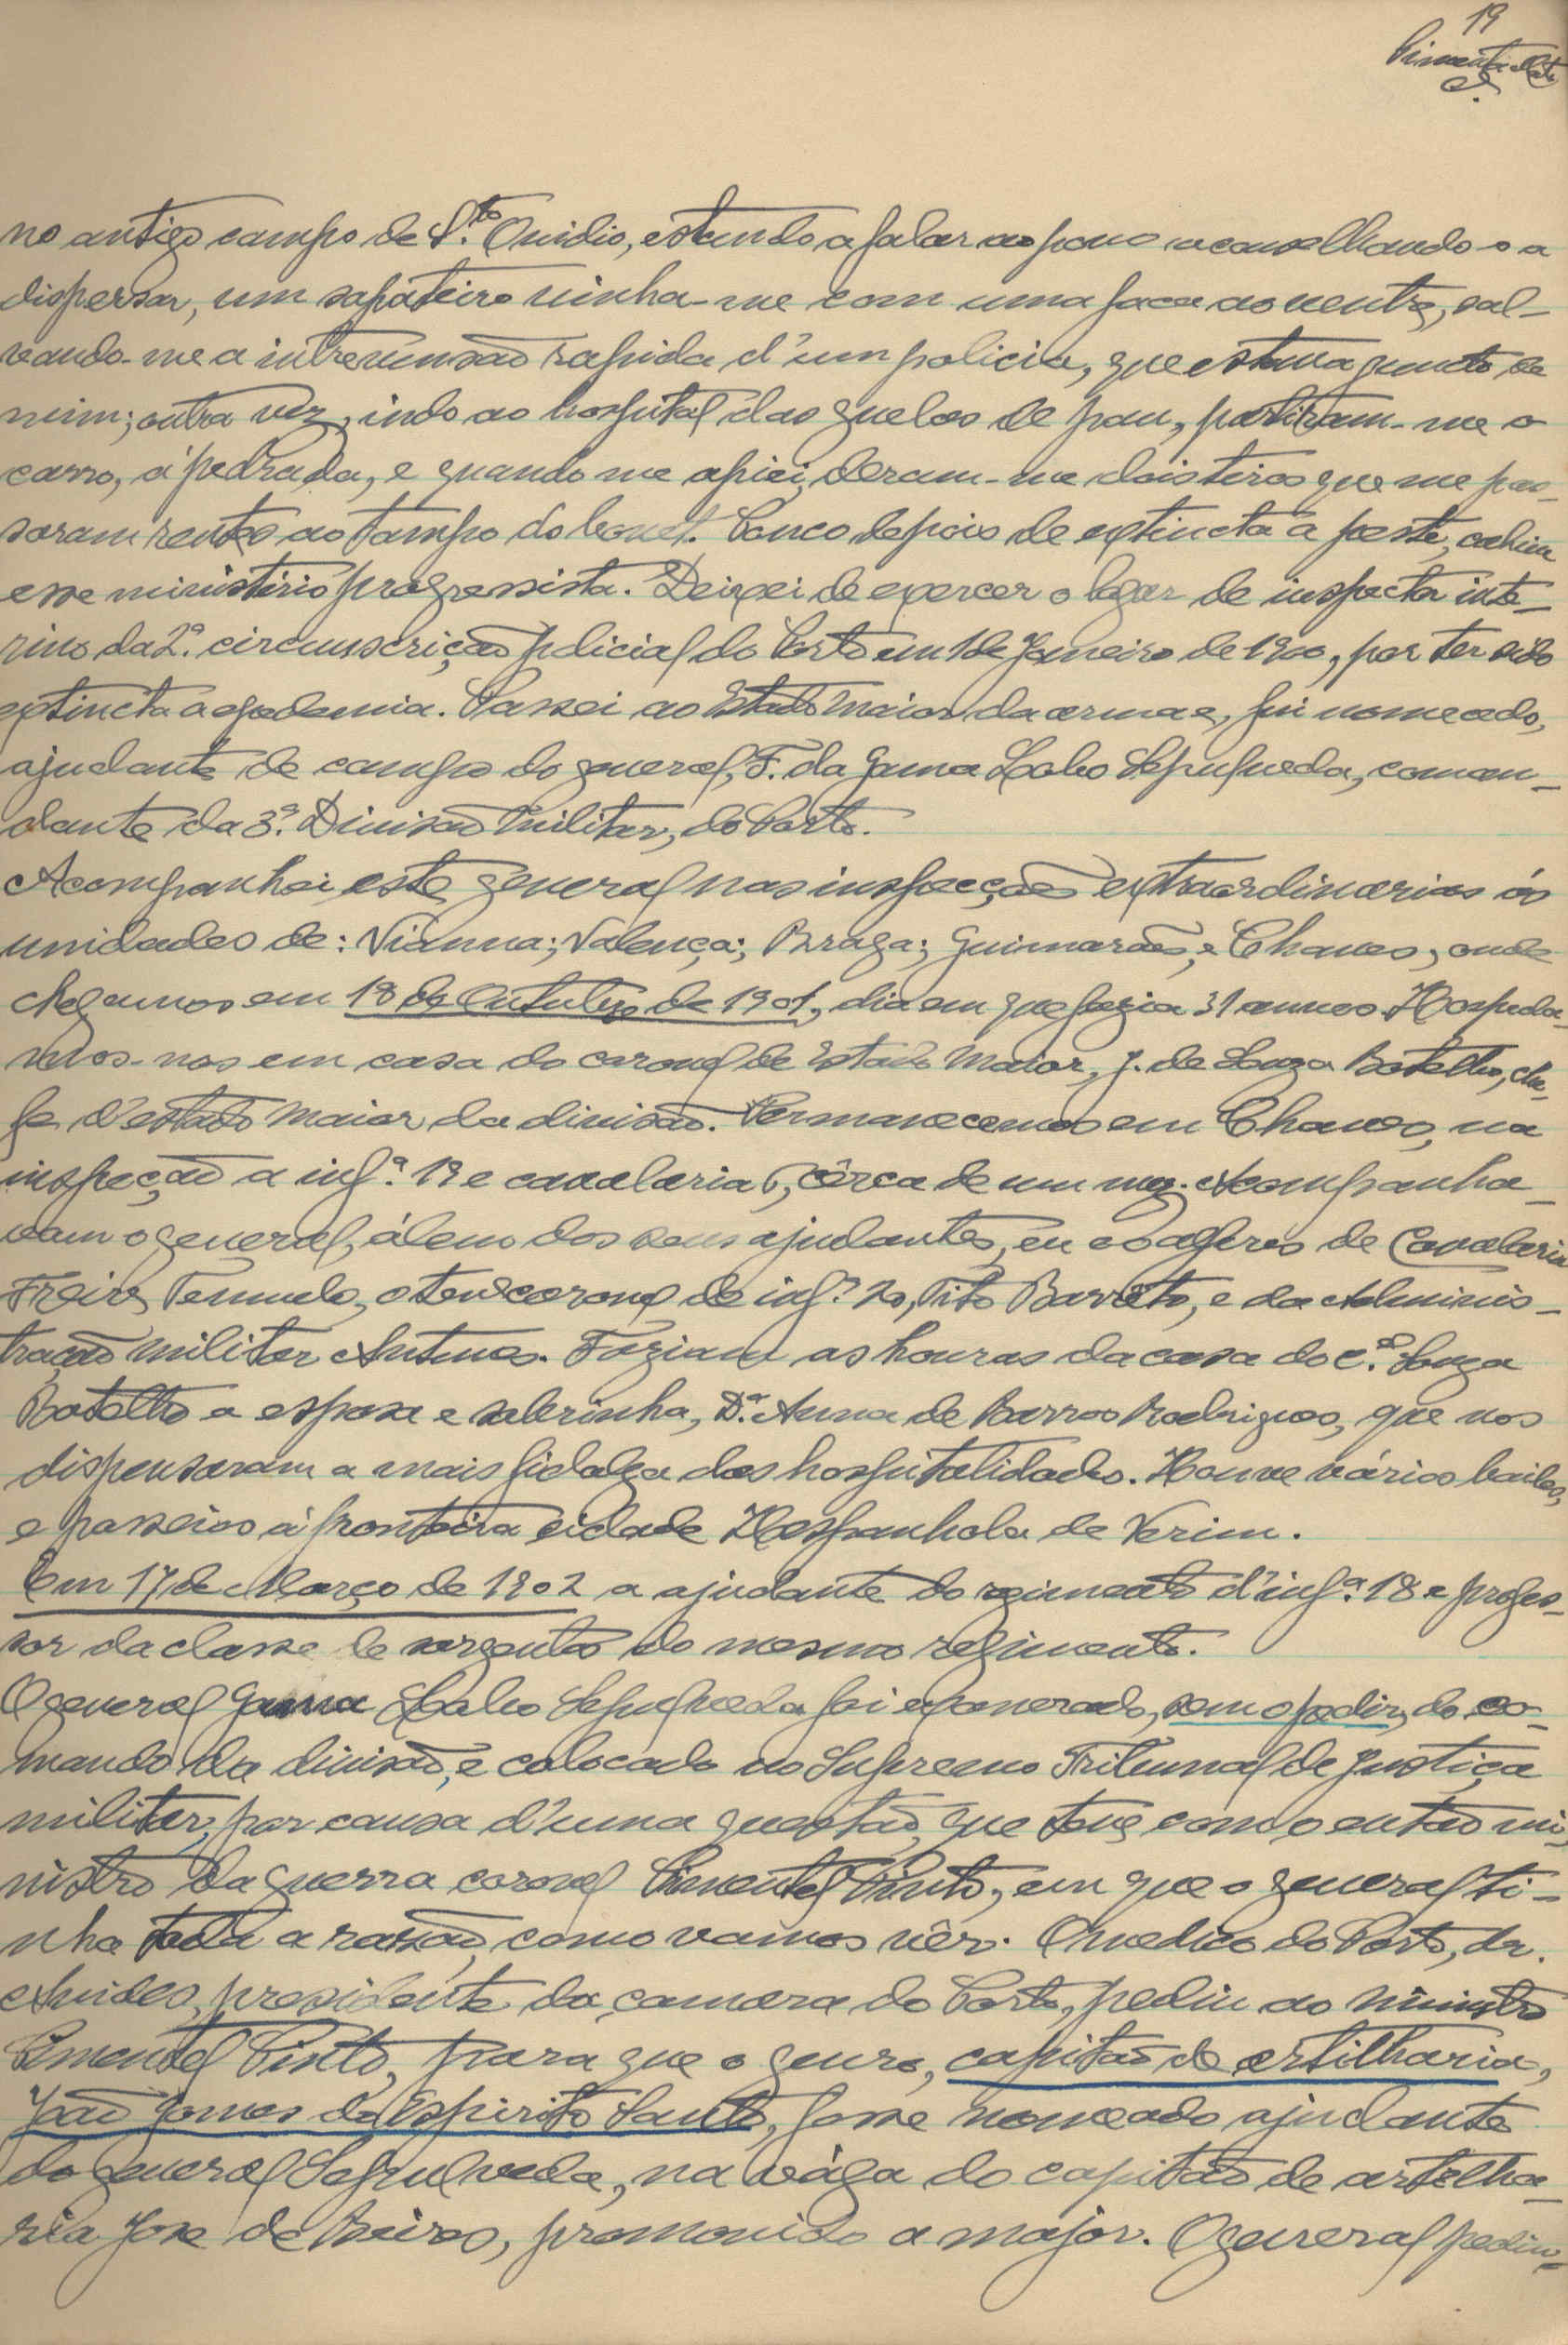 19
no antigo campo de S.to Ovidio, estando a falar ao povo aconselhando-o a
dispersar, um sapateiro vinha-me com uma faca ao ventre, sal-
vando-me a intrevensão rapida d'um policia, que estava junto de
mim; outra vez, indo ao hospital das guelas de pau, partiram-me o
carro, á pedrada, e quando me apiei, deram-me dois tiros que me pas-
saram rentes ao tampo do bonet. Pouco depois de extincta a peste, cahia
esse ministério progressista. Deixei de exercer o logar de inspector inte-
rino da 2ª. circunscrição policial do Porto em 1 de Janeiro de 1900, por ter sido
extincta a epedemia. Passei ao Estado Maior da arma e, fui nomeado,
ajudante de campo do general, F. da Gama Lobo Sepulveda, coman-
dante da 3ª. Divisão Militar, do Porto.
Acompanhei este general nas inspecções extraordinarias ás
unidades de: Vianna; Valença; Braga; Guimarães, e Chaves, onde
chegamos em 18 de Outubro de 1901, dia em que fazia 31 annos. Hospeda-
mos-nos em casa do coronel de Estado Maior, J. de Souza Botelho, che-
fe d'estado Maior da divisão. Permanecemos em Chaves, na
inspeção a infª. 19 e cavalaria 6, cêrca de um mez. Acompanha-
vam o general, álem dos seus ajudantes, eu e o alferes de Cavalaria
Freire Temudo, o ten.e coronel de infª. 20, Tito Barreto, e da Adminis-
tração Militar Antunes. Faziam as honras da casa do c.el Souza
Botelho a esposa e sobrinha, D.ª Anna de Barros Rodrigues, que nos
dispensaram a mais fidalga das hospitalidades. Houve vários bailes,
e passeios á fronteira cidade Hespanhola de Verim.
Em 17 de Março de 1902 a ajudante do regimento d'infª. 18 e profes-
sor da classe de sargentos do mesmo regimento.
O general Gama Lobo Sepulveda foi exonerado, sem o pedir, do co-
mando da divisão, e colocado no Supremo Tribunal de Justiça
militar, por causa d'uma questão, que teve com o então mi-
nistro da guerra coronel Pimentel Pinto, em que o general ti-
nha toda a razão, como vamos vêr. O medico do Porto, dr.
presidente da camara do Porto, pediu ao ministro
Pimentel Pinto, para que o genro, capitão de artilharia,
João Gomes do Espirito Santo, fosse nomeado ajudante
do general Sepulveda, na vága do capitão de artelha-
ria José de promovido a major. O general pediu-